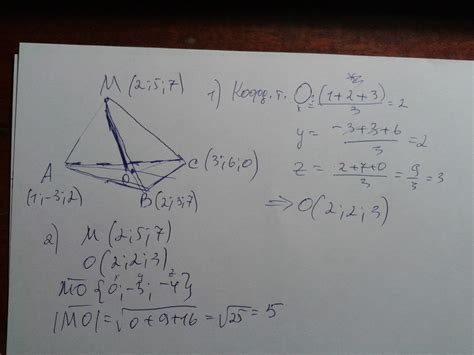 M(2;5;7)
A
(1;-3;2)
O
B(2;3;7)
C(3;6;0)
1) Коорд. т. O: x = (1+2+3)/3 = 2
y = (-3+3+6)/3 = 2
z = (2+7+0)/3 = 9/3 = 3
⇒ O(2;2;3)
2) M(2;5;7)
O(2;2;3)
MO {0;-3;-4}
|MO| = √(0+9+16) = √25 = 5